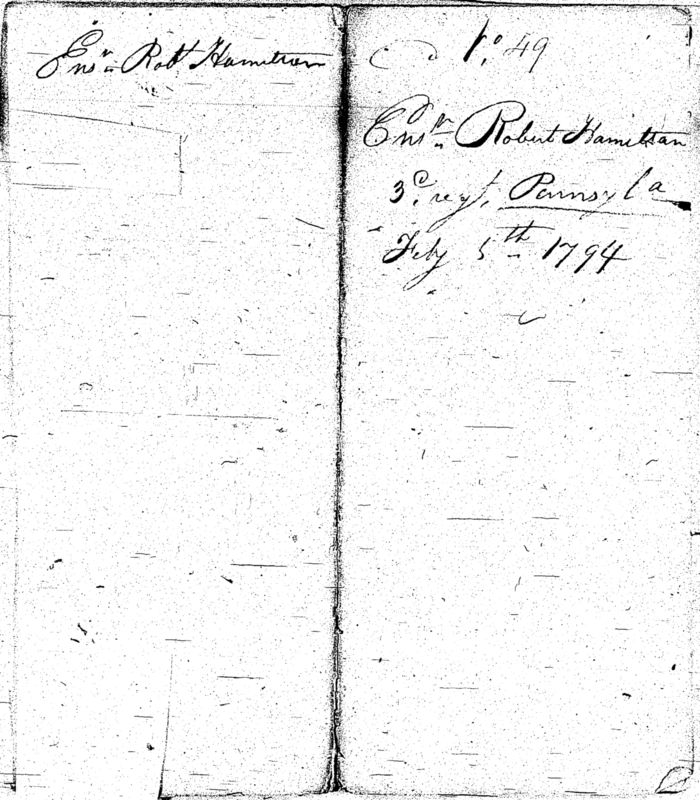 Ensn Robt Hamilton
No 49
Ensn Robert Hamilton
3d regt, Pennsyla
Feby 5th 1794